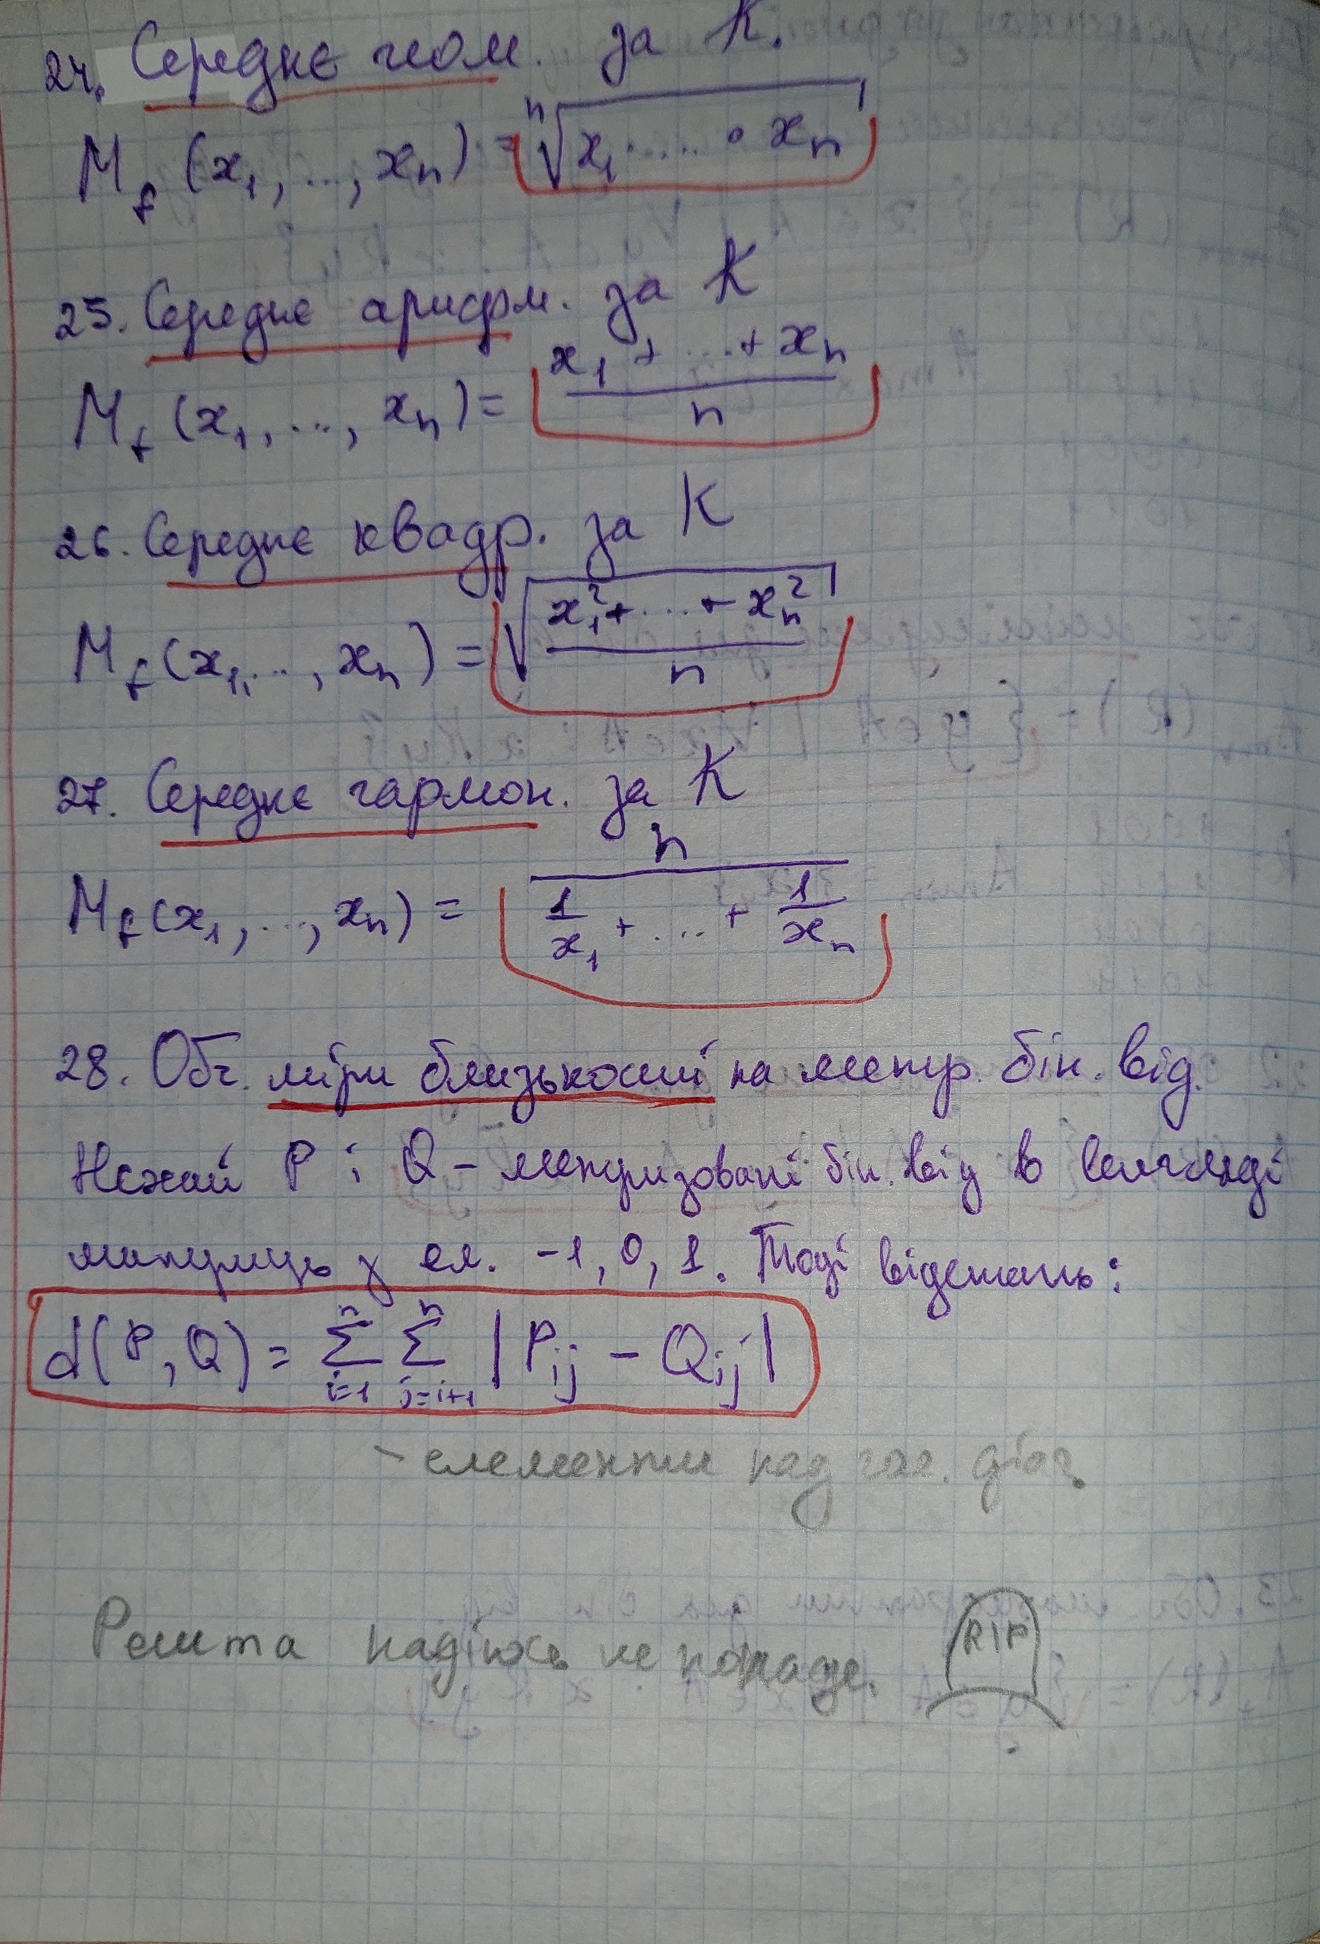 24. Середнє геом. за К.
M_f (x_1, ..., x_n) = \sqrt[n]{x_1 · ... · x_n}
25. Середнє арифм. за К
M_f (x_1, ..., x_n) = \frac{x_1 + ... + x_n}{n}
26. Середнє квадр. за К
M_f (x_1, ..., x_n) = \sqrt{\frac{x_1^2 + ... + x_n^2}{n}}
27. Середнє гармон. за К
M_f (x_1, ..., x_n) = \frac{n}{\frac{1}{x_1} + ... + \frac{1}{x_n}}
28. Обч. міри близькості на метр. бін. від.
Нехай P і Q – метризовані бін. від в вигляді
матриць з ел. -1, 0, 1. Тоді відстань:
d(P, Q) = \sum_{i=1}^{n} \sum_{j=i+1}^{n} |P_{ij} - Q_{ij}|
- елементи над гол. діаг.
Решта надіюсь не попаде.
RIP